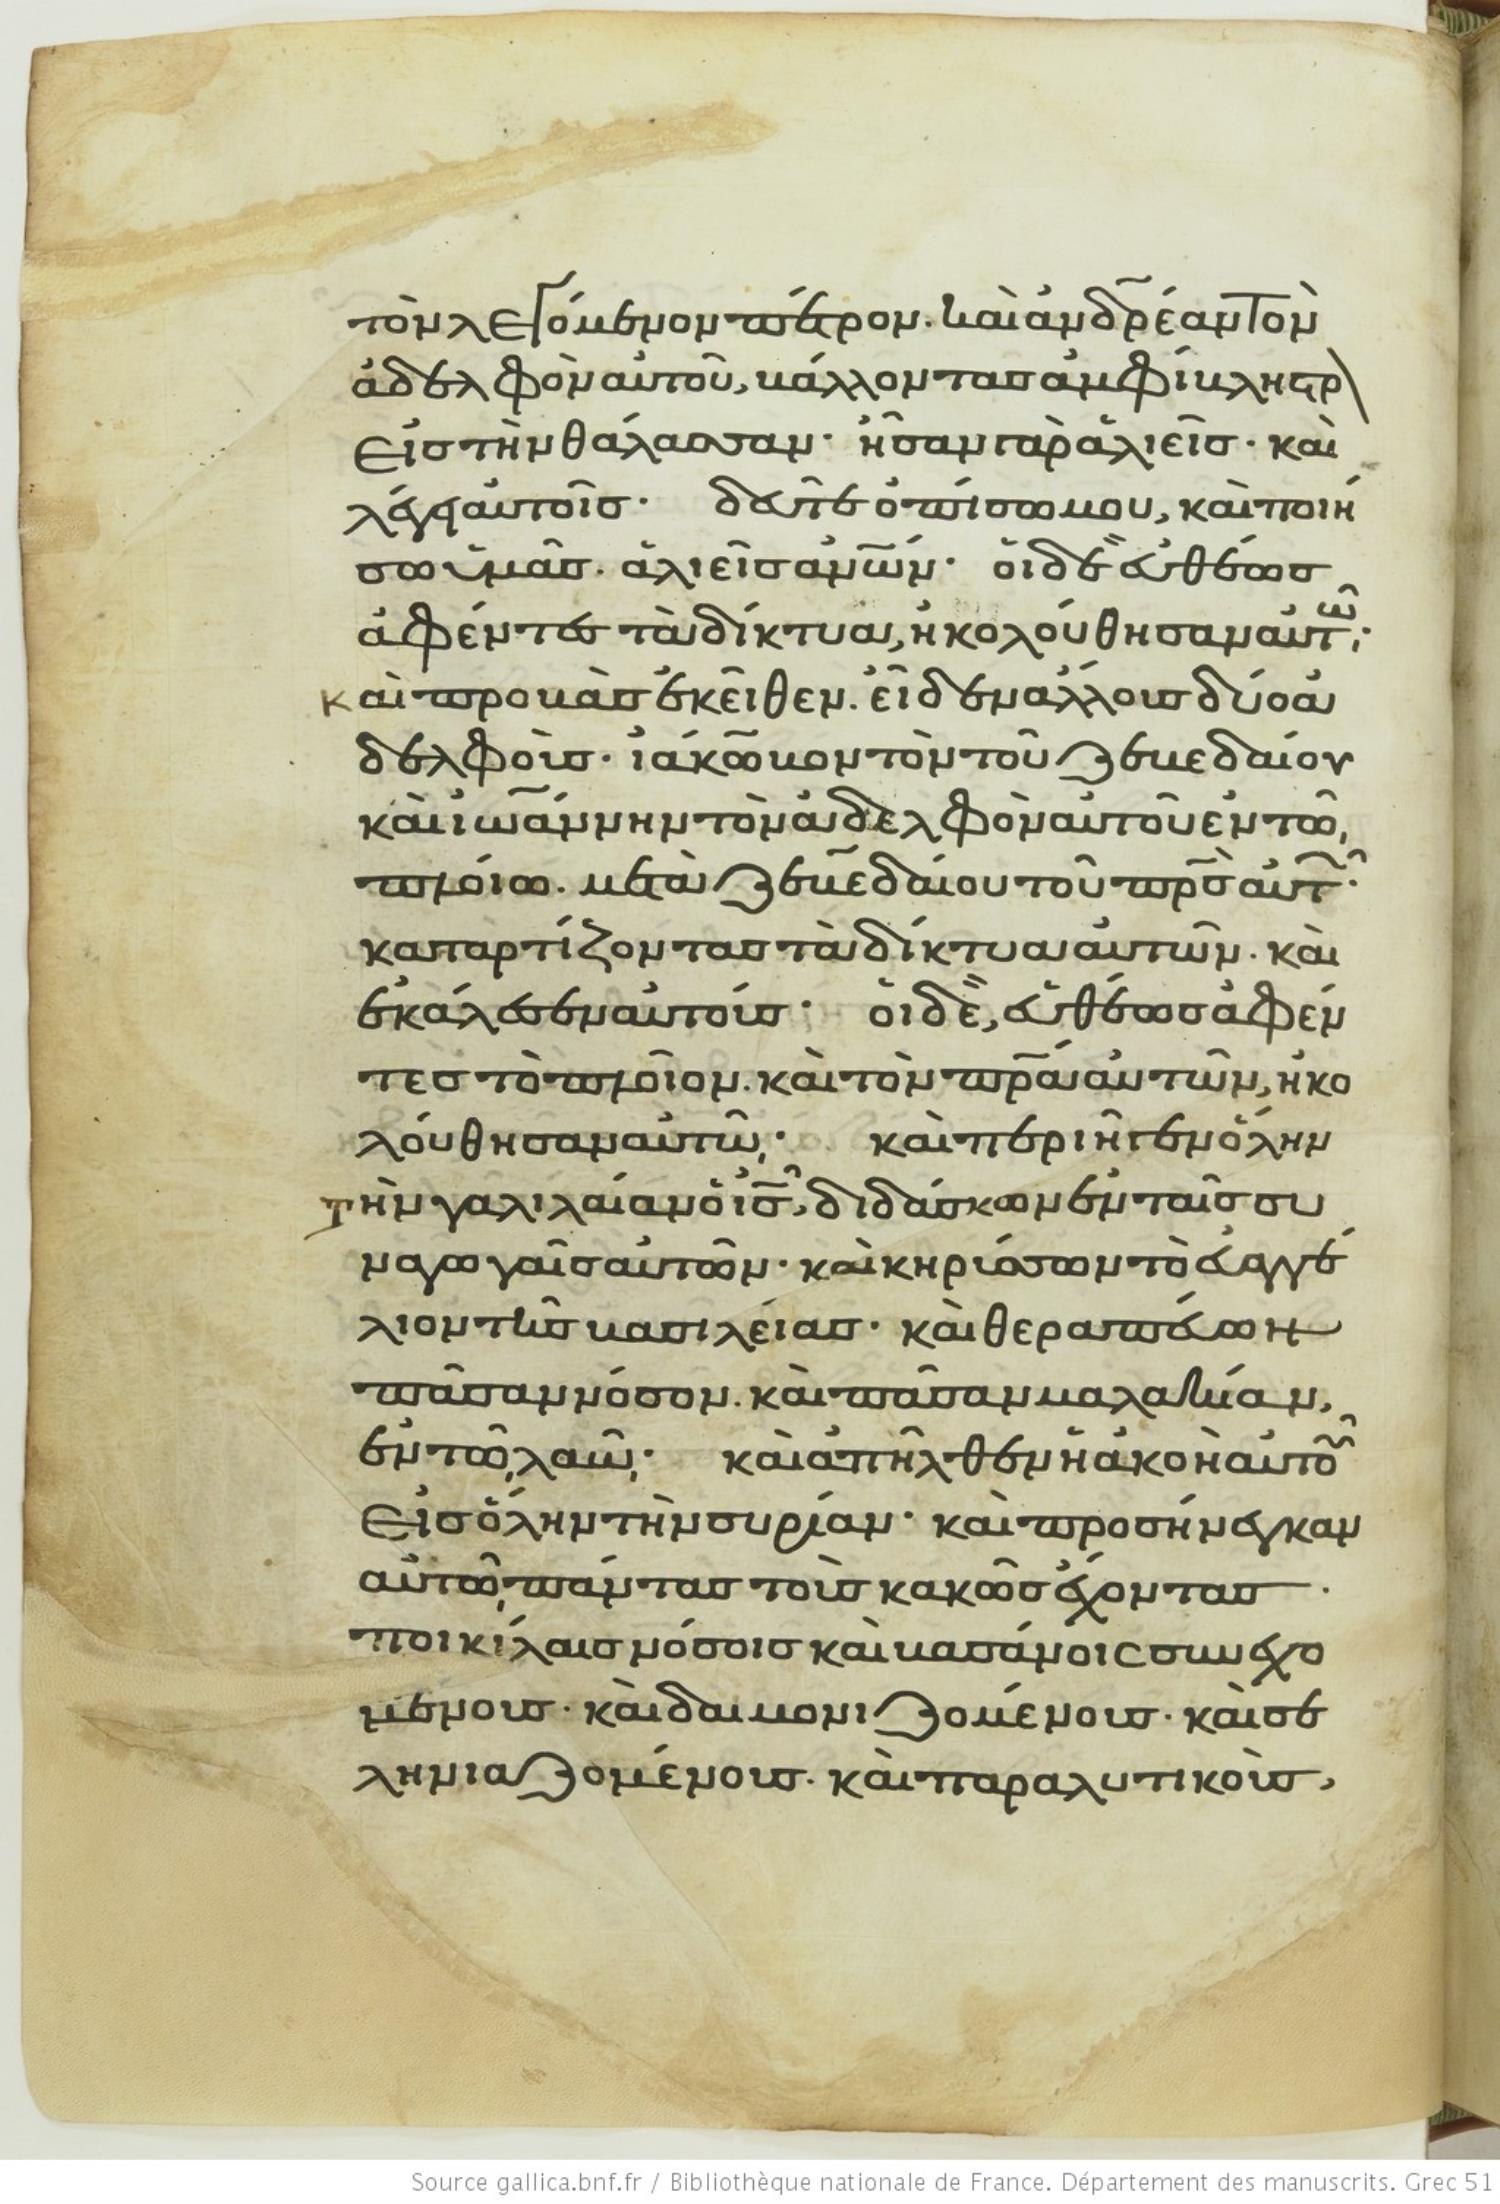 τὸν λεγόμενον πέτρον. καὶ ἀνδρέαν τὸν
ἀδελφὸν αὐτοῦ, βάλλοντας ἀμφίβληστρ
εἰς τὴν θάλασσαν· ἦσαν γὰρ ἁλιεῖς· καὶ
λέγει αὐτοῖς· δεῦτε ὀπίσω μου, καὶ ποιή
σω ὑμᾶς. ἁλιεῖς ἀνῶν· οἱ δὲ εὐθέως
ἀφέντες τὰ δίκτυα, ἠκολούθησαν αὐτῶ·
καὶ προβὰς ἐκεῖθεν. εἶδεν ἄλλους δύο ἀ
δελφοὺς· ἰάκωβον τὸν τοῦ ζεβεδαίου
καὶ ἰωάννην τὸν ἀδελφὸν αὐτοῦ ἐν τῶ
πλοίω. μετὰ ζεβεδαίου τοῦ πρς αὐτ·
καταρτίζοντας τὰ δίκτυα αὐτῶν. καὶ
ἐκάλεσεν αὐτούς· οἱ δὲ, εὐθέως ἀφέν
τες τὸ πλοῖον. καὶ τὸν πρα αὐτῶν, ἠκο
λούθησαν αὐτῶ· καὶ περιῆγεν ὅλην
τὴν γαλιλαίαν ὁ ις, διδάσκων ἐν ταῖς συ
ναγωγαῖς αὐτῶν· καὶ κηρύσσων τὸ εὐαγγέ
λιον τῆς βασιλείας· καὶ θεραπεύων
πᾶσαν νόσον. καὶ πᾶσαν μαλακίαν,
ἐν τῶ λαῶ· καὶ ἀπῆλθεν ἡ ἀκοὴ αὐτοῦ
εἰς ὅλην τὴν συρίαν· καὶ προσήνεγκαν
αὐτῶ πάντας τοὺς κακῶς ἔχοντας.
ποικίλαις νόσοις καὶ βασάνοις συνεχο
μένους· καὶ δαιμονιζομένους· καὶ σε
ληνιαζομένους· καὶ παραλυτικοὺς,
Source gallica.bnf.fr / Bibliothèque nationale de France. Département des manuscrits. Grec 51